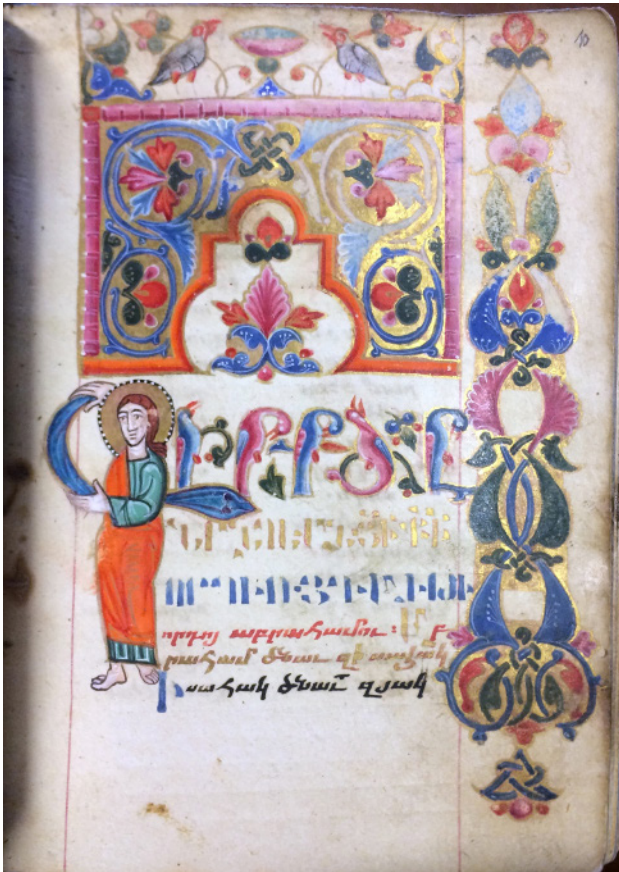 10
ԳԻՐՔ ԾՆ
ՆԴԵԱՆ ՅԻ ՔԻ
ՈՐԴՒՈՅ ԴԱՒԹԻ
որդոյ աբրահամու : Աբ
րահամ ծնաւ զիսահակ
Իսահակ ծնաւ զյակ